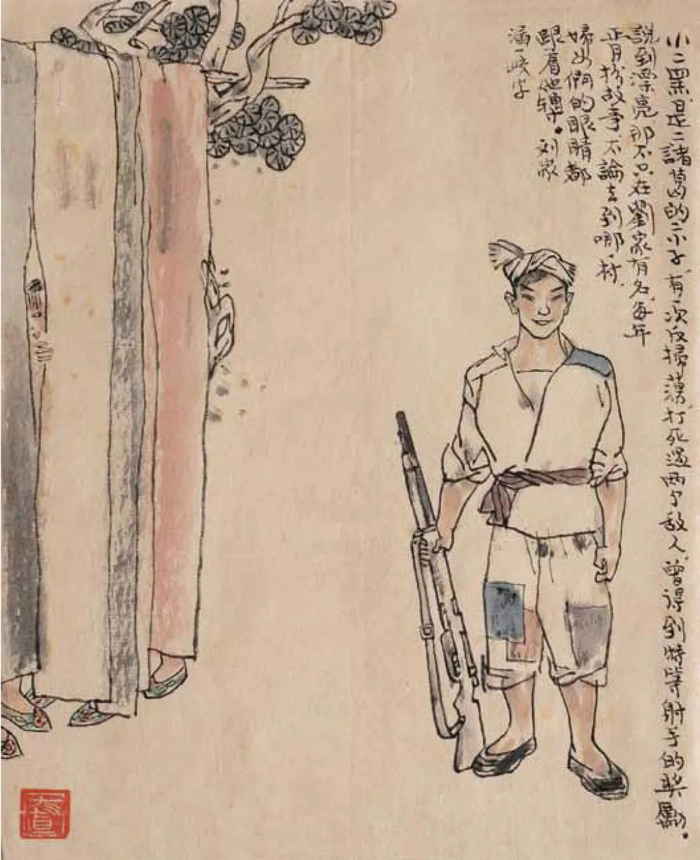 小二黑是二諸葛的二小子,有一次反掃蕩,打死過兩个敵人,曾得到特等射手的獎勵。
說到漂亮那不只在劉家有名,每年
正月扮故事不論去到哪一村,
婦女們的眼睛都
跟着他轉。刘家
漏一峧字